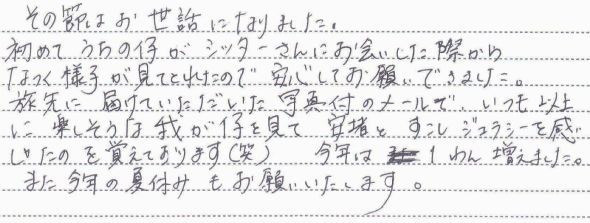 その節はお世話になりました。
初めてうちの仔がシッターさんにお会いした際から
なつく様子が見てとれたので安心してお願いできました。
旅先に届けていただいた写真付のメールで、いつも以上
に楽しそうな我が仔を見て安堵とすこしジェラシーを感
じたのを覚えております(笑) 今年は1わん増えました。
また今年の夏休みもお願いいたします。